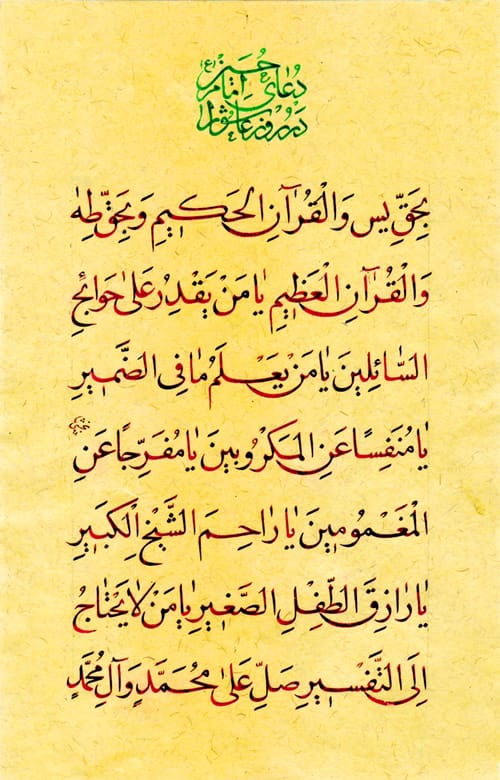 دُعای اِمام حسین (ع)
دَر روز عاشورا
بِحَقِّ یس وَالْقُرْآنِ الحَکیمِ وَ بِحَقِّ طٰهٰ
وَالْقُرْآنِ الْعَظیمِ یٰا مَنْ یَقْدِرُ عَلیٰ حَوائِجِ
السّٰائِلینَ یٰا مَنْ یَعْلَمُ مٰا فِی الضَّمیرِ
یٰا مُنَفِسًا عَنِ المَکرُوبینَ یٰا مُفَرِّجًا عَنِ
الْمَغْمُومینَ یٰا رٰاحِمَ الشَّیْخِ الْکَبیرِ
یٰا رٰازِقَ الطِّفْلِ الصَّغیرِ یٰا مَنْ لاٰ یَحْتٰاجُ
اِلَی التَّفْسیرِ صَلِّ عَلیٰ مُحَمَّدٍ وَ آلِ مُحَمَّدٍ